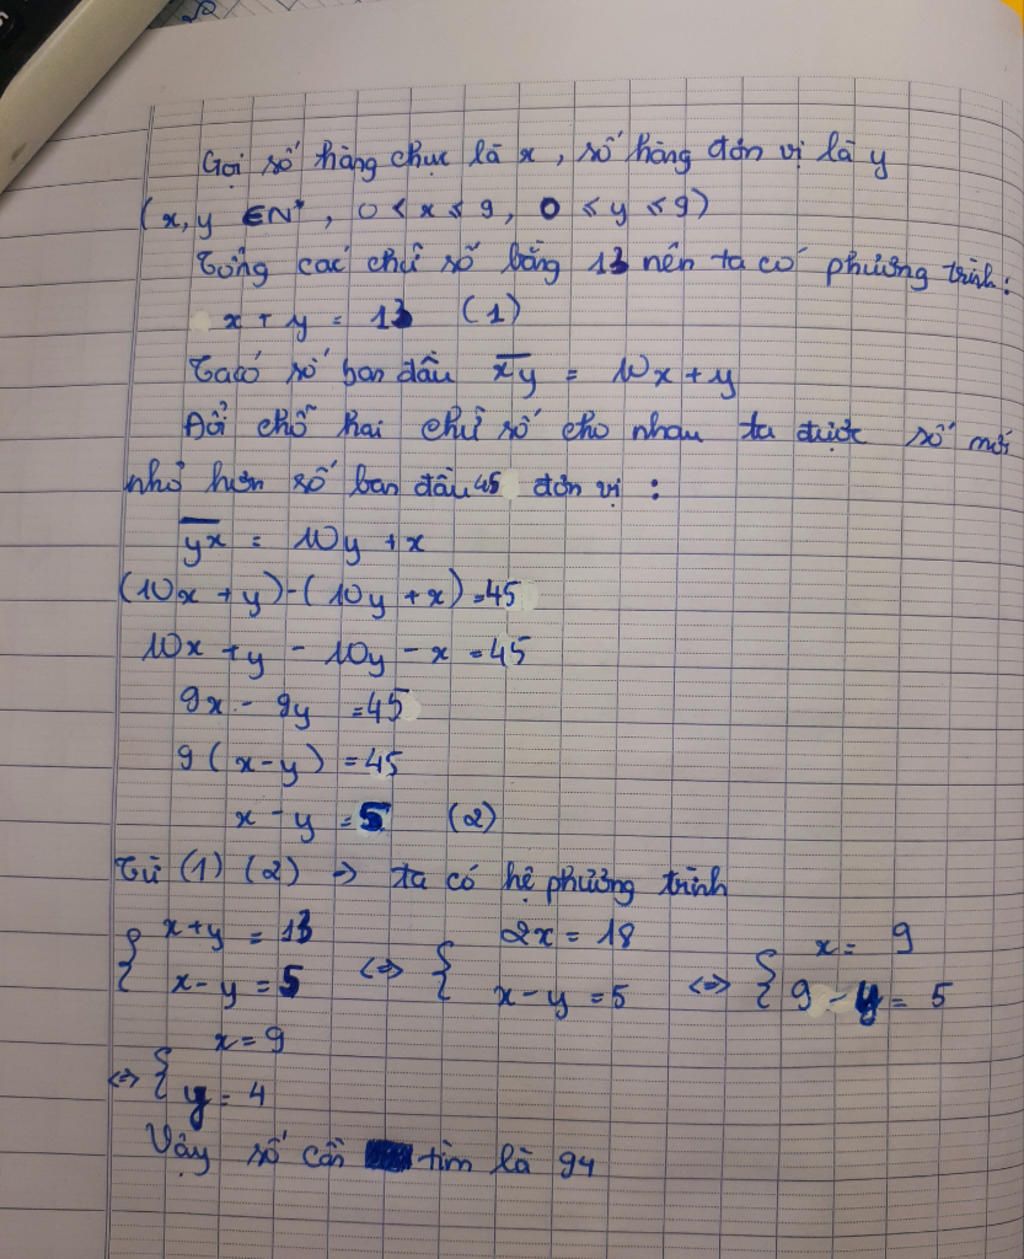 Gọi số hàng chục là x, số hàng đơn vị là y
(x, y ∈ N*, 0 < x ≤ 9, 0 ≤ y ≤ 9)
Tổng các chữ số bằng 13 nên ta có phương trình:
x + y = 13 (1)
Ta có số ban đầu \overline{xy} = 10x + y
Đổi chỗ hai chữ số cho nhau ta được số mới
nhỏ hơn số ban đầu 45 đơn vị :
\overline{yx} = 10y + x
(10x + y) - (10y + x) = 45
10x + y - 10y - x = 45
9x - 9y = 45
9(x - y) = 45
x - y = 5 (2)
Từ (1) (2) → ta có hệ phương trình
{ x + y = 13 ; x - y = 5 <=> { 2x = 18 ; x - y = 5 <=> { x = 9 ; 9 - y = 5
<=> { x = 9 ; y = 4
Vậy số cần tìm là 94